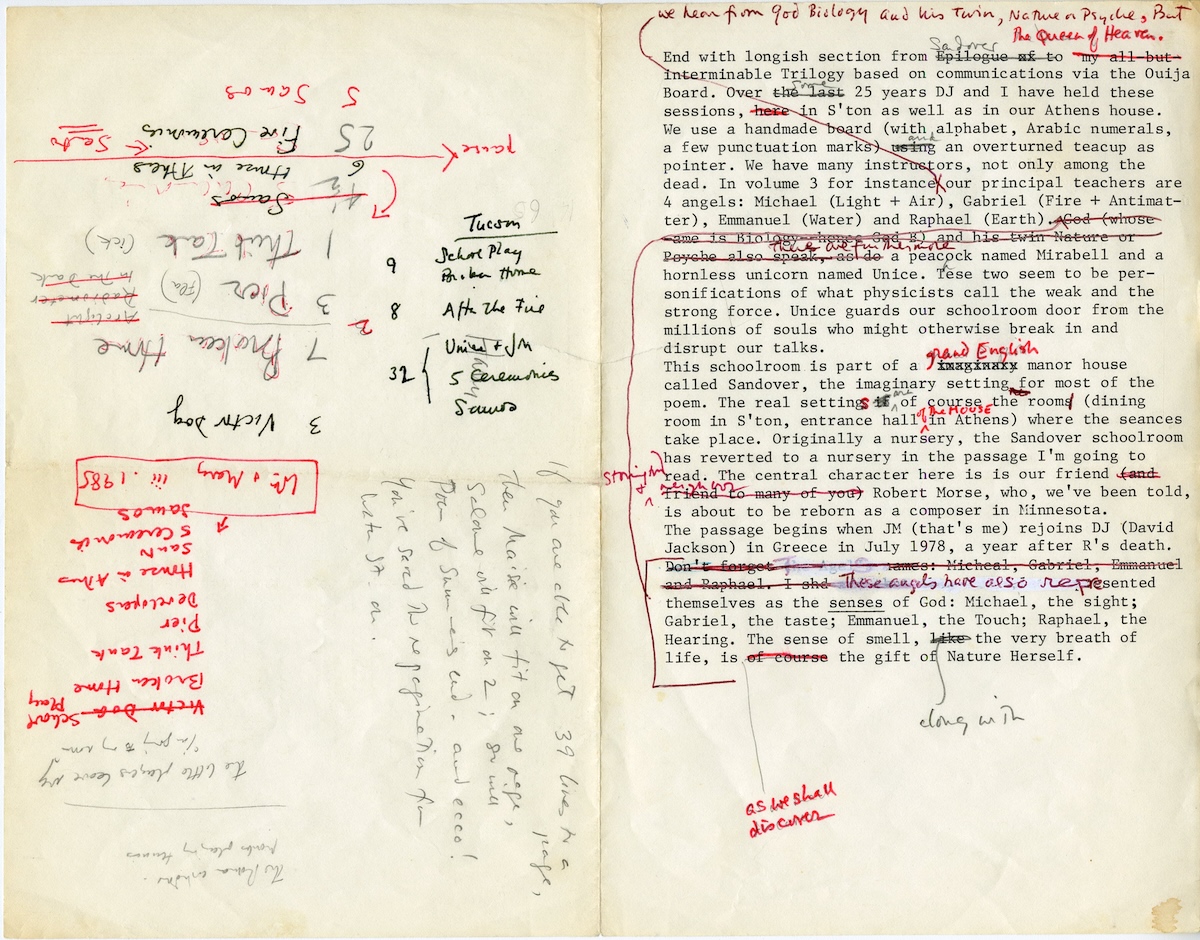 5 Samos
25 Five Ceremonies
Santo
6 House in Athens
pause
4½ Samos
1 Think Tank (ick)
3 Pier (Fla)
In The Dark
Radiometer
Arclight
2
7 Broken Home
3 Victor Dog
Tucson
9 School Play
Broken Home
8 After The Fire
Unice + JM
32 5 Ceremonies
Samos
Wm & Mary iii.1985
Samos
5 Ceremonies
San N
House in Athens
Developers
Pier
Think Tank
Broken Home
Victor Dog School Play
the little players leave my
If you are able to get 39 lines to a page,
then Maisie will fit on one page,
Salome will fit on 2; so will
Poem of Summer's End - and ecco!
You've saved the repagination from
Water St. on.
we hear from God Biology and his Twin, Nature or Psyche, But
The Queen of Heaven.
Sandover
End with longish section from Epilogue xf to my all-but-
interminable Trilogy based on communications via the Ouija
some
Board. Over the last 25 years DJ and I have held these
sessions, here in S'ton as well as in our Athens house.
We use a handmade board (with alphabet, Arabic numerals,
and
a few punctuation marks) using an overturned teacup as
pointer. We have many instructors, not only among the
dead. In volume 3 for instance our principal teachers are
4 angels: Michael (Light + Air), Gabriel (Fire + Antimat-
ter), Emmanuel (Water) and Raphael (Earth). God (whose
name is Biology—hence God B) and his twin Nature or
There are furthermore
Psyche also speak, as do a peacock named Mirabell and a
hornless unicorn named Unice. Tese two seem to be per-
sonifications of what physicists call the weak and the
strong force. Unice guards our schoolroom door from the
millions of souls who might otherwise break in and
disrupt our talks.
grand English
This schoolroom is part of a imaginary manor house
called Sandover, the imaginary setting for most of the
are
poem. The real settings if of course the rooms (dining
of the HOUSE
room in S'ton, entrance hall in Athens) where the seances
take place. Originally a nursery, the Sandover schoolroom
has reverted to a nursery in the passage I'm going to
Stonington
read. The central character here is is our friend (and
neighbor
friend to many of you) Robert Morse, who, we've been told,
is about to be reborn as a composer in Minnesota.
The passage begins when JM (that's me) rejoins DJ (David
Jackson) in Greece in July 1978, a year after R's death.
Don't forget names: Micheal, Gabriel, Emmanuel
and Raphael. I shd These angels have also represented
themselves as the senses of God: Michael, the sight;
Gabriel, the taste; Emmanuel, the Touch; Raphael, the
Hearing. The sense of smell, like the very breath of
life, is of course the gift of Nature Herself.
along with
as we shall
discover